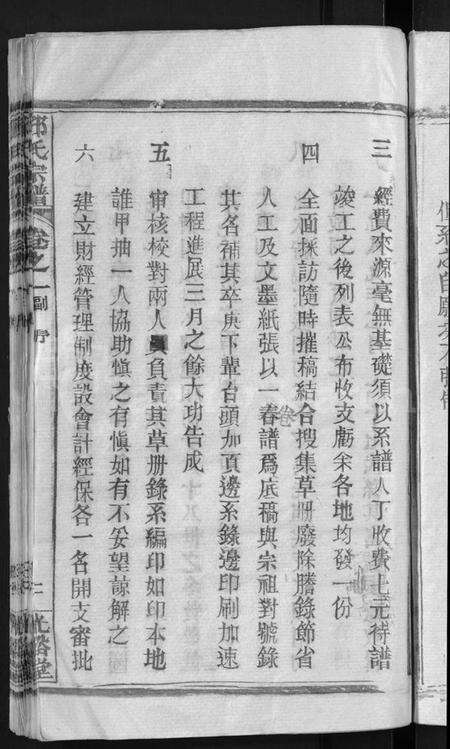 三 經費來源毫無基礎須以系譜人丁收費上元待譜
竣工之後列表公布收支虧余各地均發一份
四 全面採訪隨時摧稿結合搜集草册廢除謄錄節省
人工及文墨紙張以一春譜爲底稿與宗祖對號錄
其名補其卒庚下輩台頭加頁邊系錄邊印刷加速
工程進展三月之餘大功告成
五 审核校對兩人員負責其草册錄系編印如印本地
誰甲抽一人協助慎之有慎如有不妥望諒解之
六 建立財經管理制度設會計經保各一名開支審批
邱氏宗譜
卷之一
副序
光裕堂